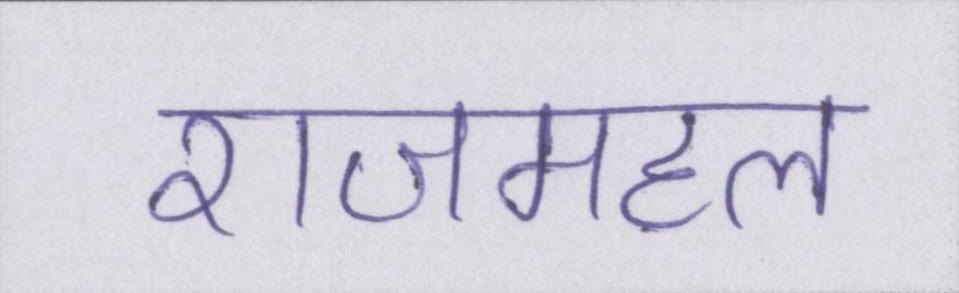 राजमहल